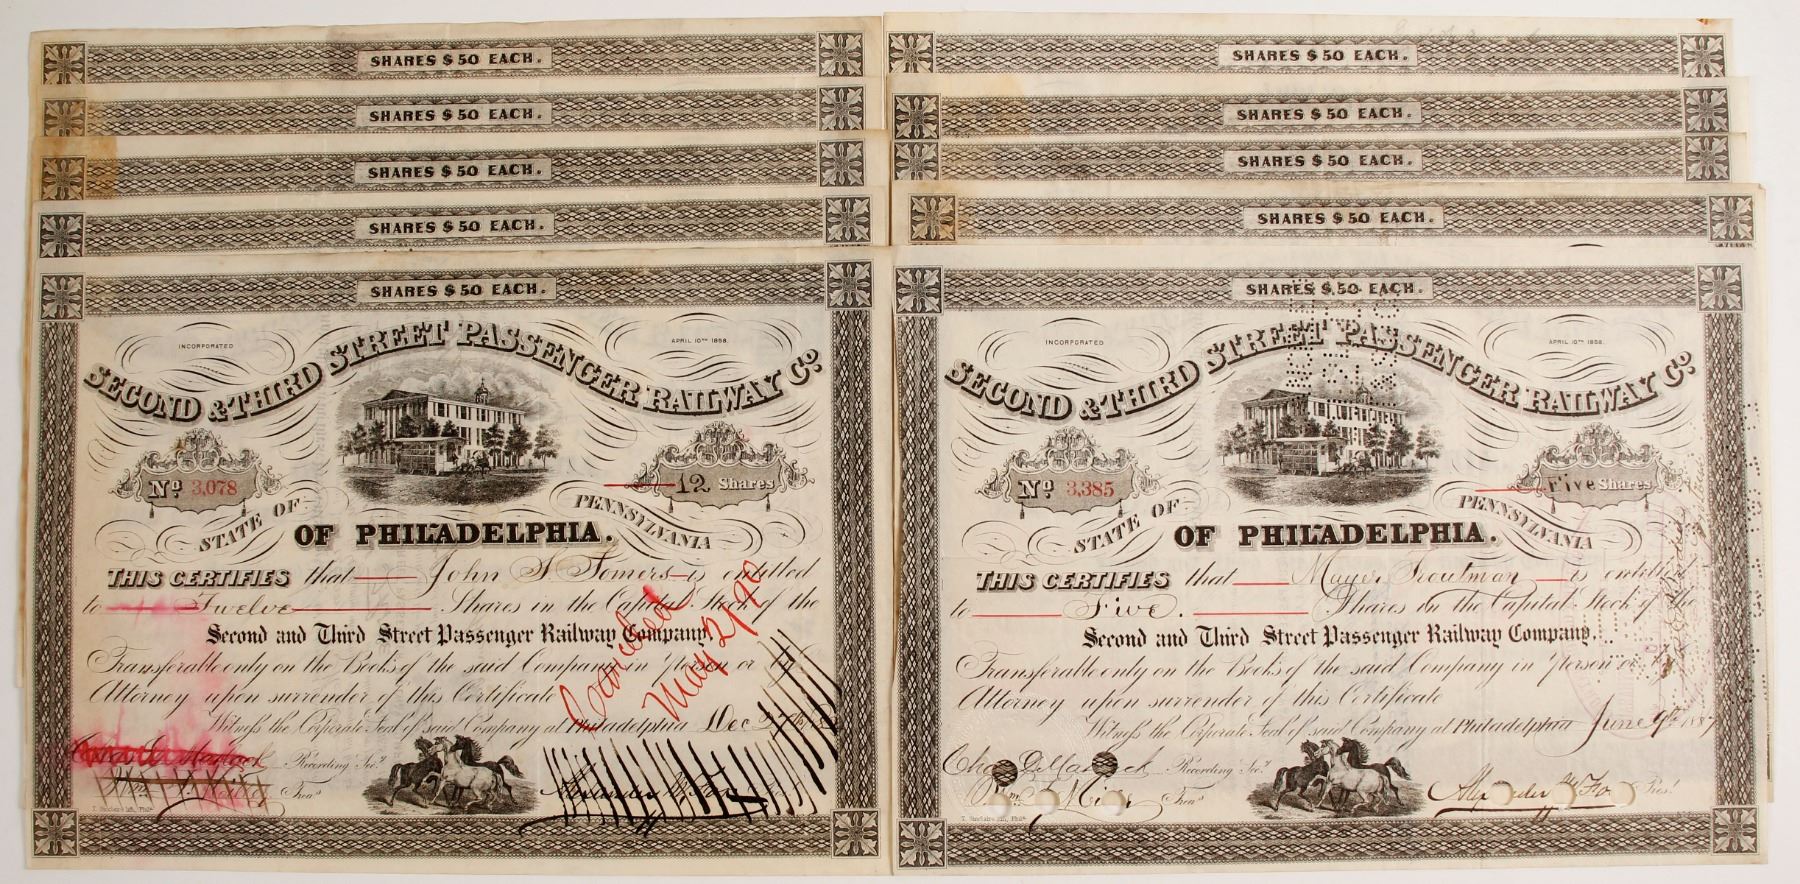 SHARES $50 EACH.
SHARES $50 EACH.
SHARES $50 EACH.
SHARES $50 EACH.
SHARES $50 EACH.
INCORPORATED APRIL 10TH 1858.
SECOND & THIRD STREET PASSENGER RAILWAY Cº
Nº 3,078
12 Shares
STATE OF PENNSYLVANIA
OF PHILADELPHIA.
THIS CERTIFIES that John S. Somers is entitled
to Twelve Shares in the Capital Stock of the
Second and Third Street Passenger Railway Company,
Transferable only on the Books of the said Company in Person or
Attorney upon surrender of this Certificate
Witness the Corporate Seal of said Company at Philadelphia Dec
Recording Sec.y
Treas
Alexander M. Fox Pres!
T. Sinclair's lith, Phila
Cancelled
May 2/90
SHARES $50 EACH.
SHARES $50 EACH.
SHARES $50 EACH.
SHARES $50 EACH.
SHARES $50 EACH.
INCORPORATED APRIL 10TH 1858.
SECOND & THIRD STREET PASSENGER RAILWAY Cº
Nº 3,385
Five Shares
STATE OF PENNSYLVANIA
OF PHILADELPHIA.
THIS CERTIFIES that Mayer Troutman is entitled
to Five. Shares in the Capital Stock of the
Second and Third Street Passenger Railway Company,
Transferable only on the Books of the said Company in Person or
Attorney upon surrender of this Certificate
Witness the Corporate Seal of said Company at Philadelphia June 9th 1887
Recording Sec.y
Treas
Alexander M. Fox Pres!
T. Sinclair's lith, Phila